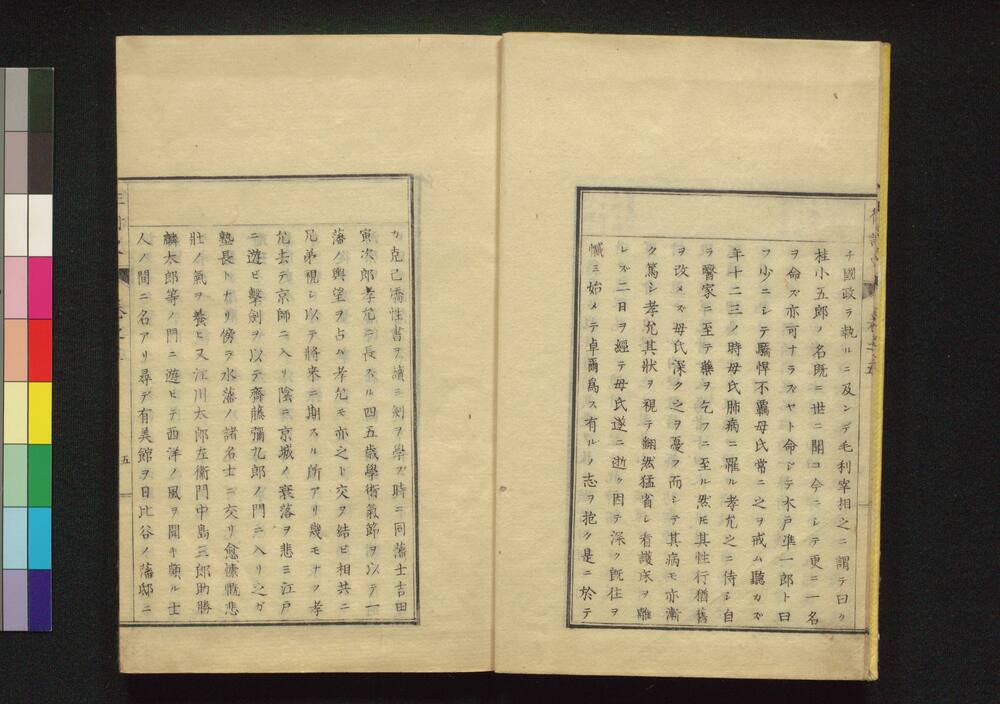 チ國政ヲ執ルニ及ンデ毛利宰相之ニ謂テ曰ク
桂小五郎ノ名既ニ世ニ聞コ今ニシテ更ニ一名
ヲ命ズ亦可ナラズヤト命ジテ木戸準一郎ト曰
フ少ニシテ驕悍不羈母氏常ニ之ヲ戒ム聽カズ
年十二三ノ時母氏肺病ニ罹ル孝允之ニ侍シ自
ラ醫家ニ至テ藥ヲ乞フニ至ル然𪜈其性行猶舊
ヲ改メズ母氏深ク之ヲ憂フ而シテ其病モ亦漸
ク篤シ孝允其狀ヲ視テ翻然猛省シ看護床ヲ離
レズ二日ヲ經テ母氏遂ニ逝ク因テ深ク既往ヲ
懺ミ始メテ卓爾爲ス有ルノ志ヲ抱ク是ニ於テ
カ克己矯性書ヲ讀ミ剣ヲ學ズ時ニ同藩士吉田
寅次郎孝允ニ長ズル四五歳學術氣節ヲ以テ一
藩ノ輿望ヲ占ム孝允モ亦之ト交ヲ結ビ相共ニ
兄弟視シ以テ將來ニ期スル所アリ幾モナク孝
允去テ京師ニ入リ陰ニ京城ノ衰落ヲ悲ミ江戸
ニ遊ビ擊劍ヲ以テ齊藤彌九郎ノ門ニ入リ之ガ
塾長トナリ傍ラ水藩ノ諸名士ニ交リ愈慷慨悲
壯ノ氣ヲ養ヒ又江川太郎左衞門中島三郎助勝
麟太郎等ノ門ニ遊ビテ西洋ノ風ヲ聞キ頗ル士
人ノ間ニ名アリ尋デ有美館ヲ日比谷ノ藩邸ニ
五